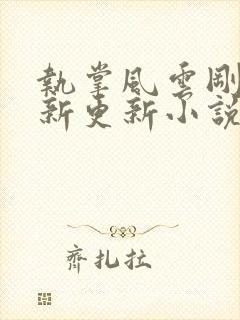 執掌風雲剛
新更新小說
齊扎拉